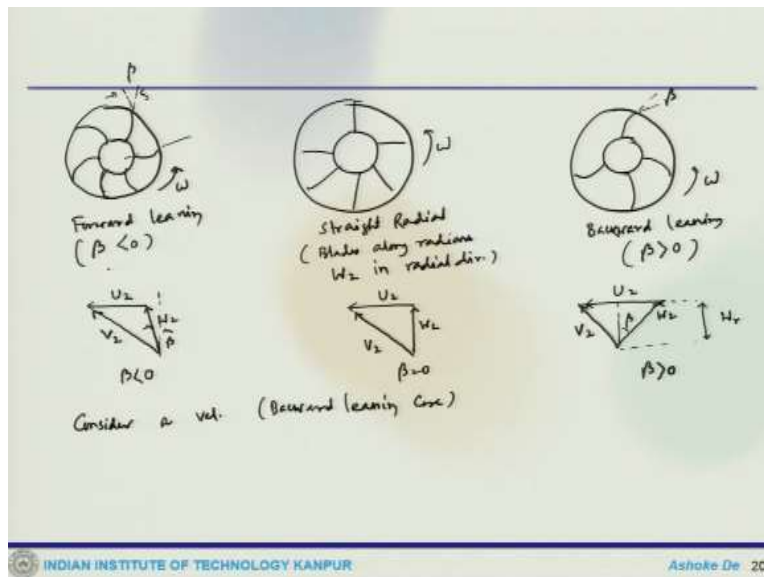 β
ω
Forward leaning
(β <0)
U2
W2
V2
β
β<0
ω
Straight Radial
(Blades along radians
W2 in radial dir.)
U2
W2
V2
β=0
β
ω
Backward leaning
(β>0)
U2
V2
β
W2
Wr
β>0
Consider a vel. (Backward leaning Case)
INDIAN INSTITUTE OF TECHNOLOGY KANPUR
Ashoke De 20